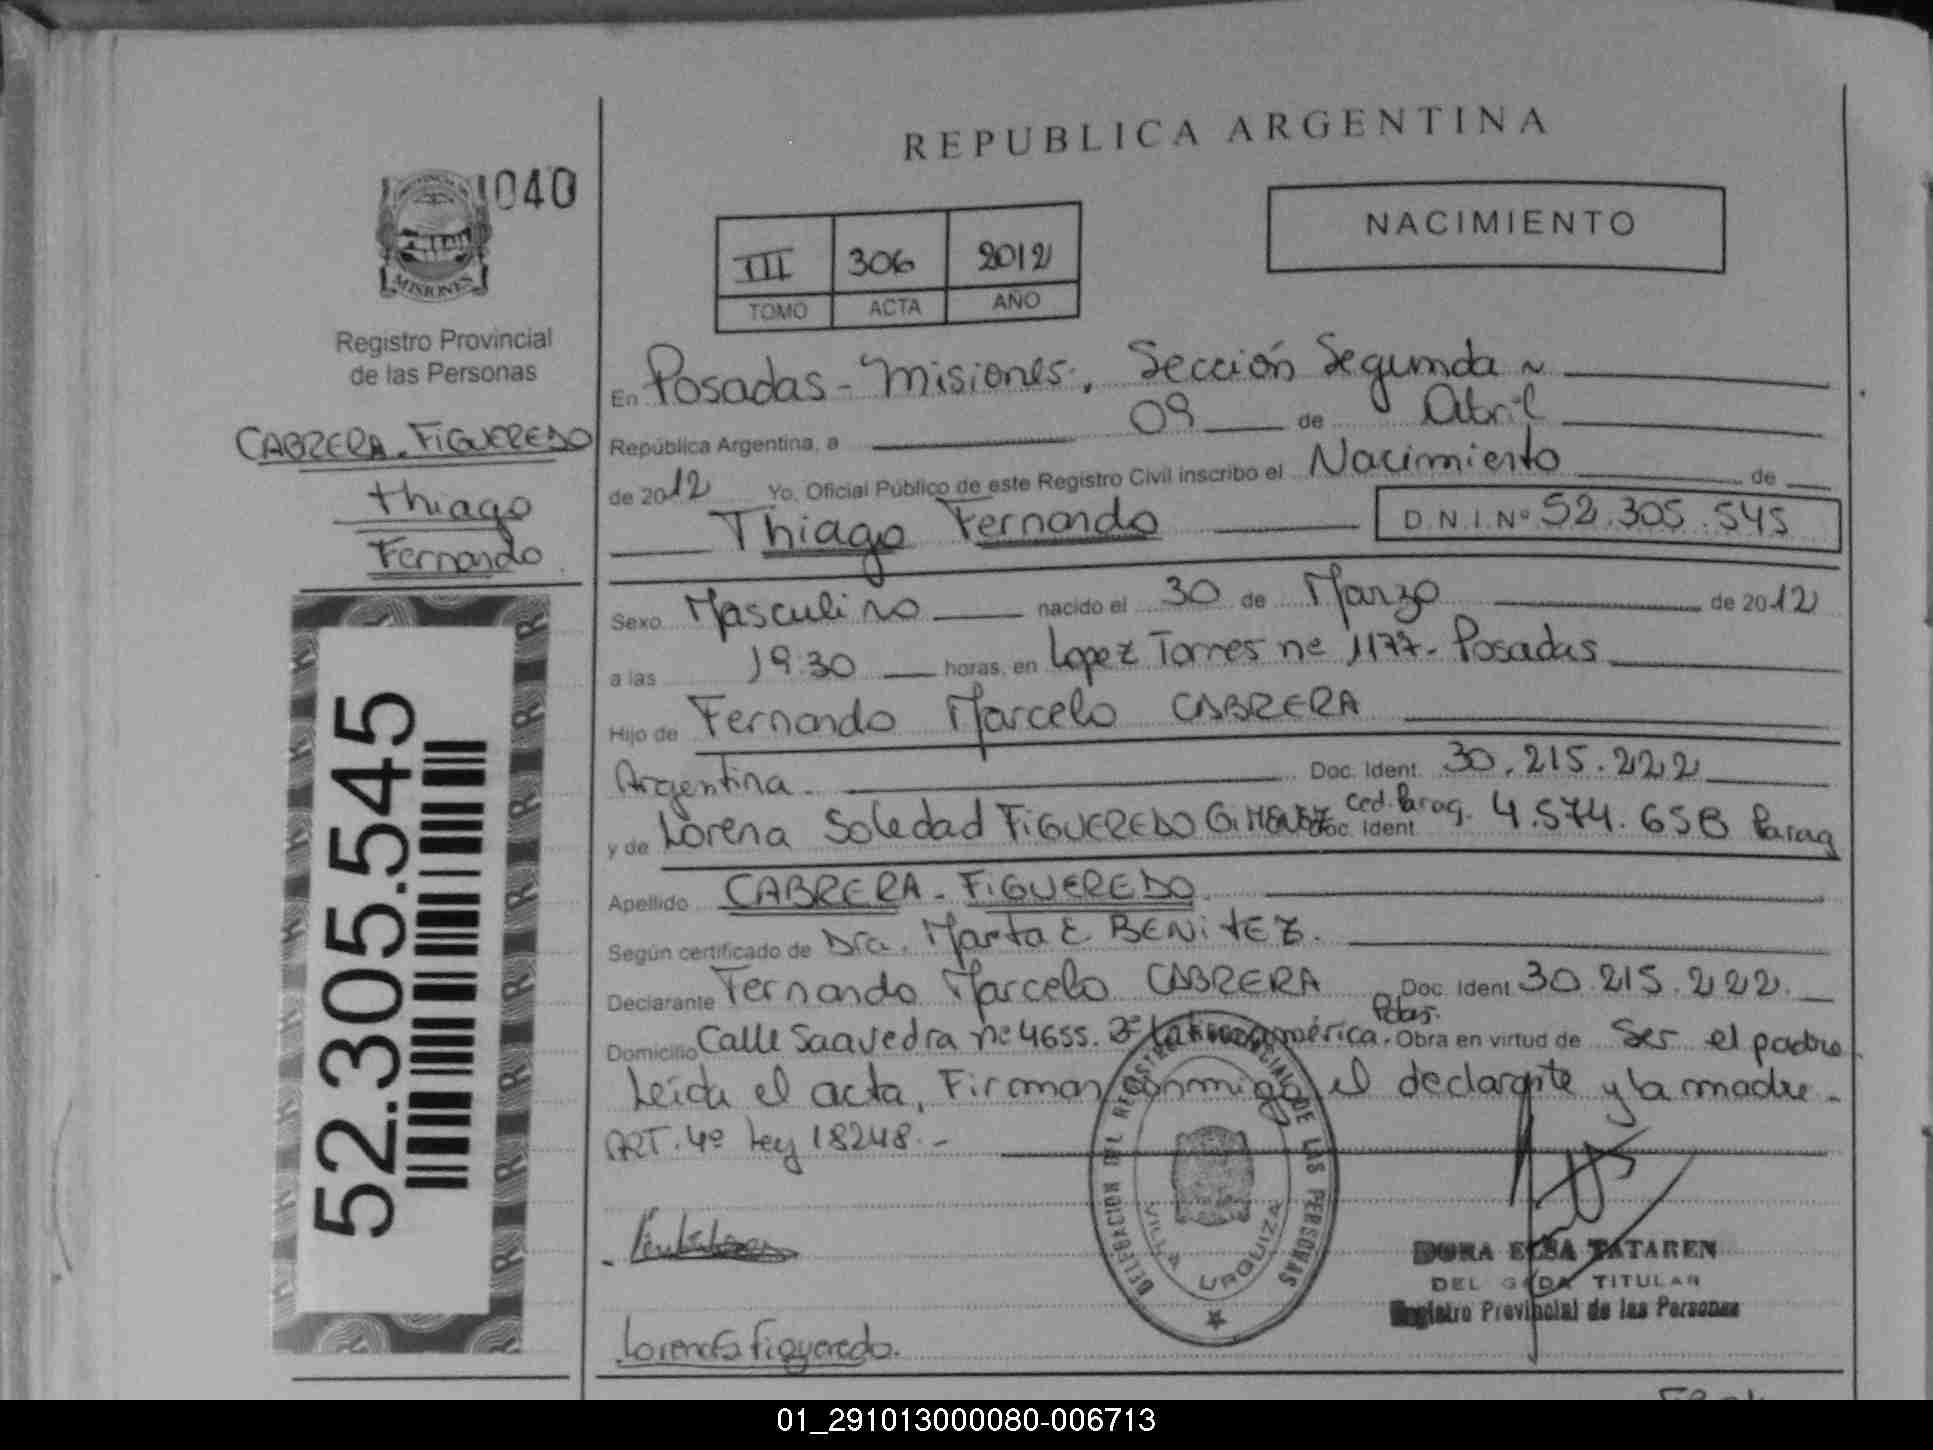 REPUBLICA ARGENTINA
040
MISIONES
Registro Provincial
de las Personas
CABRERA - FIGUEREDO
Thiago
Fernando
52.305.545
NACIMIENTO
III 306 2012
TOMO ACTA AÑO
En Posadas - Misiones, Sección Segunda
República Argentina, a 09 de Abril
de 2012 Yo, Oficial Público de este Registro Civil inscribo el Nacimiento de
Thiago Fernando D.N.I.Nº 52.305.545
Sexo Masculino nacido el 30 de Marzo de 2012
a las 19:30 horas, en Lopez Torres nº 1177 - Posadas
Hijo de Fernando Marcelo CABRERA
Argentina. Doc. Ident. 30.215.222
y de Lorena Soledad FIGUEREDO GIMENEZ Doc. Ident. Ced. Parag. 4.574.658 Parag
Apellido CABRERA - FIGUEREDO
Según certificado de Dra. Marta E BENITEZ.
Declarante Fernando Marcelo CABRERA Doc. Ident 30.215.222.
Domicilio Calle Saavedra nº 4655. Bº Latinoamérica. Pdas. Obra en virtud de Ser el padre
Leída el acta, Firman conmigo el declarante y la madre.
ART. 4º Ley 18248.-
DELEGACION DEL REGISTRO PROVINCIAL DE LAS PERSONAS
VILLA URQUIZA
DORA ELSA TATAREN
DELEGADA TITULAR
Registro Provincial de las Personas
Lorena Figueredo.
01_291013000080-006713